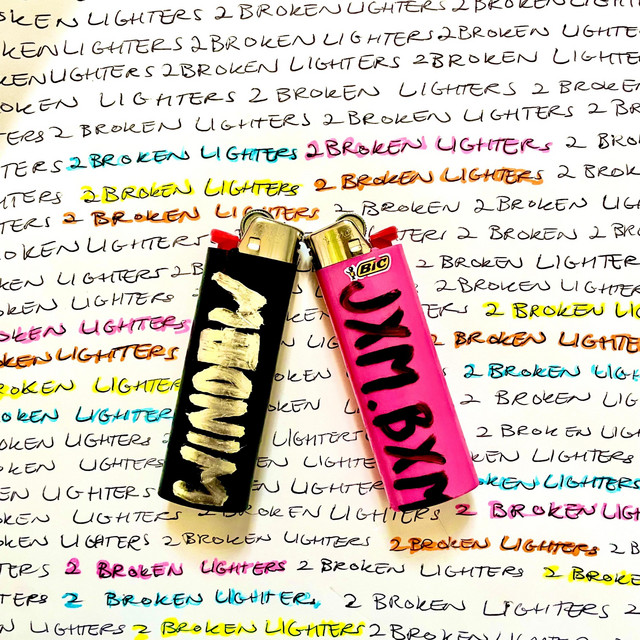 BROKEN LIGHTERS 2 BROKEN LIGHTERS 2 BROKEN LIGHTERS
KEN LIGHTERS 2 BROKEN LIGHTERS 2 BROKEN LIGHTERS
KEN LIGHTERS 2 BROKEN LIGHTERS 2 BROKEN LIGHTERS
OKEN LIGHTERS 2 BROKEN LIGHTERS 2 BROKEN
TERS 2 BROKEN LIGHTERS 2 BROKEN LIGHTERS 2 BRO
TERS 2 BROKEN LIGHTERS 2 BROKEN LIGHTERS 2 BROK
HTERS 2 BROKEN LIGHTERS 2 BROKEN LIGHTERS 2 BROK
TERS 2 BROKEN LIGHTERS 2 BROKEN LIGHTERS 2 BROK
OKEN LIGHTERS 2 BROKEN LIGHTERS 2 BRO
BROKEN LIGHTERS 2 B
BROKEN LIGHTER
BIC
JXM.BXM
BROKEN LIGHTERS
2 BROKEN LIGHTE
ROKEN LIGHTERS
2 BROKEN LIGHTE
BROKEN LIGHTERS
2 BROKEN LIGH
BROKEN LIGHTER
2 BROKEN LIGHTERS
OKEN LIGHTERS
2 BROKEN LIGH
KEN LIGHTERS
BROKEN LIGHTERS
EN LIGHTERS
KEN LIGHTERS
KEN LIGHTERS 2 BROKEN LIGHTERS 2 BROKEN LIGH
KEN LIGHTERS 2 BROKEN LIGHTERS 2 BROKEN LIGHTERS 2 B
TERS 2 BROKEN LIGHTERS 2 BROKEN LIGHTERS 2 BROKE
TERS 2 BROKEN LIGHTER, 2 BROKEN LIGHTERS 2
N LIGHTERS 2 BROKEN LIGHTERS 2 BROKEN LIGHTERS